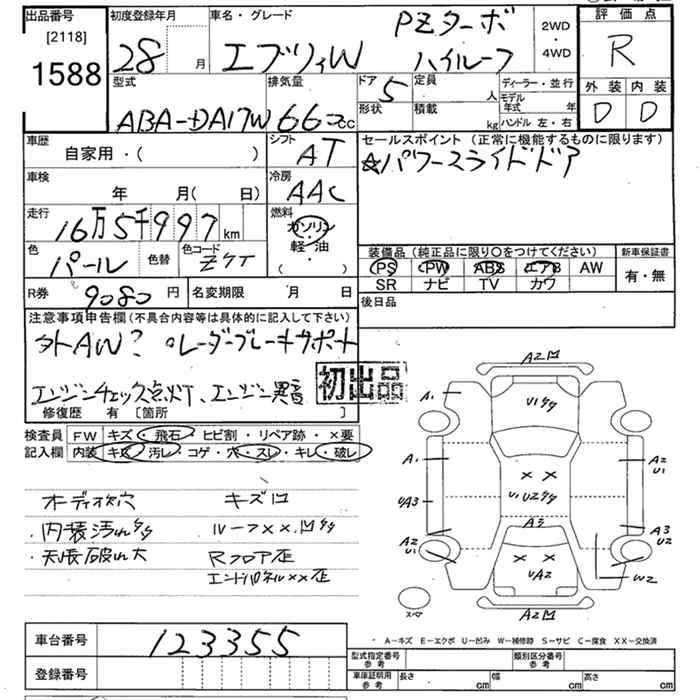 出品番号
[2118]
1588
初度登録年月
28 月
車名・グレード
PZターボ
エブリィW ハイルーフ
2WD
・
4WD
評価点
R
外装 内装
D D
型式
ABA-DA17W
排気量
660cc
ドア
5
形状
定員
人
積載
kg
ディーラー・並行
モデル年式 年
ハンドル 左・右
車歴
自家用・( )
シフト
AT
車検
年 月( 日)
冷房
AAC
走行
16万5千997km
燃料
ガソリン
・
軽油
・
( )
色
パール
色替
色コード
Z7T
R券
9080円
名変期限 月 日
セールスポイント (正常に機能するものに限ります)
☆パワースライドドア
装備品 (純正品に限り〇をつけてください)
PS PW ABS エアB AW
SR ナビ TV カワ
新車保証書
有・無
後日品
注意事項申告欄(不具合内容等は具体的に記入して下さい)
外AW? ○レーダーブレーキサポート
エンジンチェック点灯、エンジン異音
修復歴 有 〔箇所 〕
初出品
検査員記入欄
FW キズ・飛石・ヒビ割・リペア跡・×要
内装 キズ・汚レ・コゲ・穴・スレ・キレ・破レ
オーディオ欠穴 キズ凹
・内装汚れ多々 ルーフ××凹多々
・天張破れ大 Rフロア歪
エンドパネル××歪
A2凹
A1
U1多々
A1
A2
U1
UA3
U1U2多々
A3
A3
U2
A2
U1
UA2
W2
スペア
A2凹
・ A-キズ E-エクボ U-凹み W-補修跡 S-サビ C-腐食 XX-交換済
車台番号
123355
登録番号
型式指定番号
参考
類別区分番号
参考
車庫証明用
参考
長さ cm 幅 cm 高さ cm